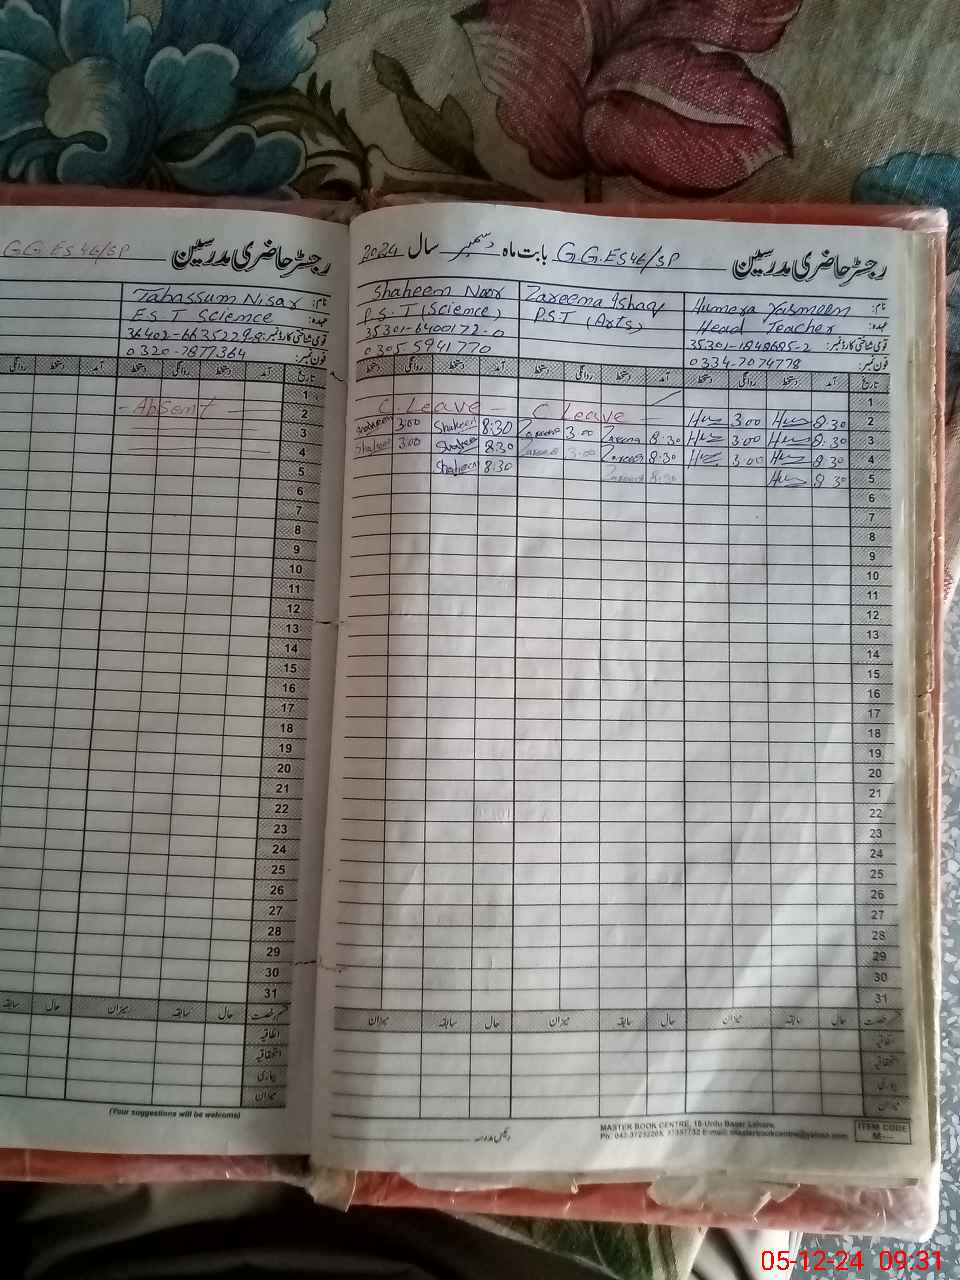 G.G.ES 46/SP رجسٹر حاضری مدرسین
Tabassum Nisar نام:
E.S.T Science عہدہ:
قومی شناختی کارڈ نمبر:
0320-7877364 فون نمبر:
روانگی دستخط آمد دستخط روانگی دستخط آمد تاریخ
1
- Absent - 2
3
4
5
6
7
8
9
10
11
12
13
14
15
16
17
18
19
20
21
22
23
24
25
26
27
28
29
30
31
سابقہ حال میزان سابقہ حال
اتفاقیہ
استحقاقیہ
بیماری
میزان
(Your suggestions will be welcome)
رجسٹر حاضری مدرسین G.G.ES 46/SP بابت ماہ دسمبر سال 2024
Shaheen Noor Zareena Ishaq Humera Yasmeen نام:
P.S.T (Science) P.S.T (Arts) Head Teacher عہدہ:
35301-6400172-0 35301-1848685-2 قومی شناختی کارڈ نمبر:
0305 5941770 0334-7074778 فون نمبر:
دستخط روانگی دستخط آمد دستخط روانگی دستخط آمد دستخط روانگی دستخط آمد تاریخ
1
C. Leave - C Leave - 3.00 8:30 2
Shaheen 3:00 Shaheen 8:30 Zareena 3.00 Zareena 8:30 3.00 8:30 3
Shaheen 3:00 Shaheen 8:30 Zareena 3.00 Zareena 8:30 3.00 8:30 4
Shaheen 8:30 Zareena 8:30 8 30 5
6
7
8
9
10
11
12
13
14
15
16
17
18
19
20
21
22
23
24
25
26
27
28
29
30
31
میزان سابقہ حال میزان سابقہ حال میزان سابقہ حال قسم رخصت
اتفاقیہ
استحقاقیہ
بیماری
میزان
رئیس مدرسہ
MASTER BOOK CENTRE, 18-Urdu Bazar Lahore.
E-mail: masterbookcentre@yahoo.com
ITEM CODE
M---
05-12-24 09:31